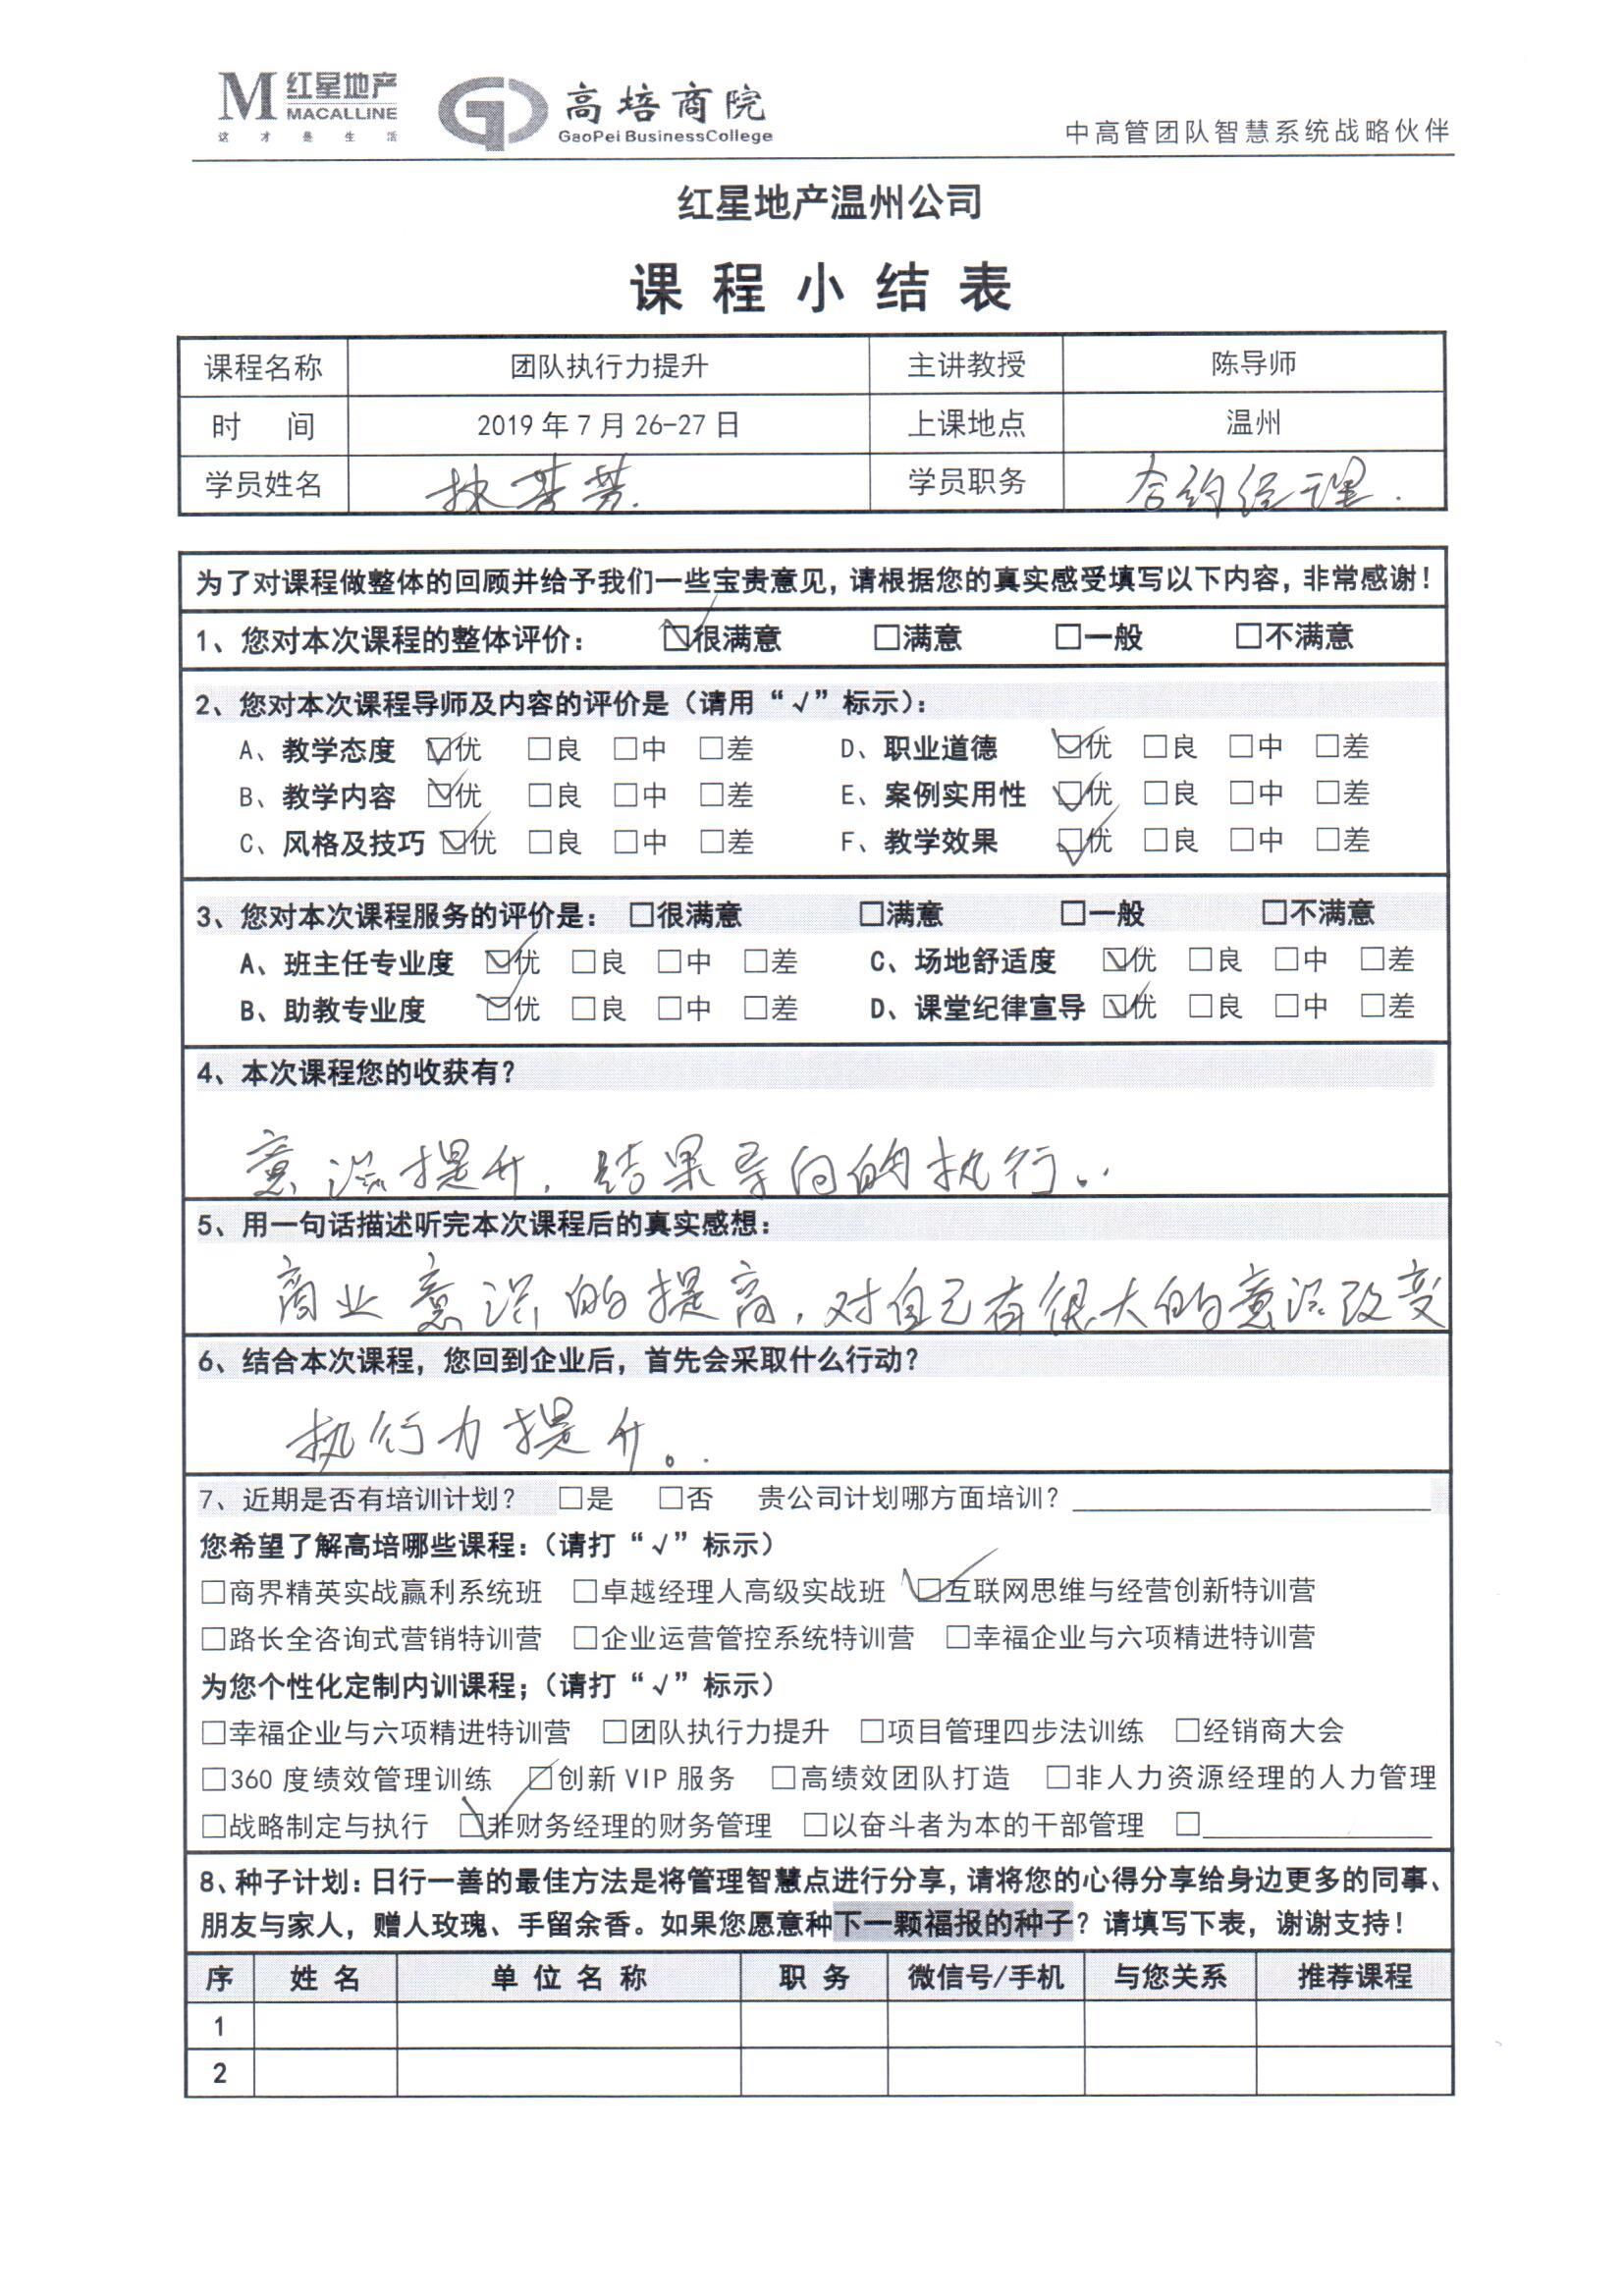 M 红星地产
MACALLINE
这才是生活
高培商院
GaoPei BusinessCollege
中高管团队智慧系统战略伙伴
红星地产温州公司
课程小结表
课程名称 团队执行力提升 主讲教授 陈导师
时 间 2019年7月26-27日 上课地点 温州
学员姓名 学员职务 合约经理.
为了对课程做整体的回顾并给予我们一些宝贵意见，请根据您的真实感受填写以下内容，非常感谢！
1、您对本次课程的整体评价： ☑很满意 □满意 □一般 □不满意
2、您对本次课程导师及内容的评价是（请用“√”标示）：
A、教学态度 ☑优 □良 □中 □差 D、职业道德 ☑优 □良 □中 □差
B、教学内容 ☑优 □良 □中 □差 E、案例实用性 ☑优 □良 □中 □差
C、风格及技巧 ☑优 □良 □中 □差 F、教学效果 ☑优 □良 □中 □差
3、您对本次课程服务的评价是： □很满意 □满意 □一般 □不满意
A、班主任专业度 ☑优 □良 □中 □差 C、场地舒适度 ☑优 □良 □中 □差
B、助教专业度 ☑优 □良 □中 □差 D、课堂纪律宣导 ☑优 □良 □中 □差
4、本次课程您的收获有？
意识提升，结果导向的执行。
5、用一句话描述听完本次课程后的真实感想：
商业意识的提高，对自己有很大的意识改变
6、结合本次课程，您回到企业后，首先会采取什么行动？
执行力提升。
7、近期是否有培训计划？ □是 □否 贵公司计划哪方面培训？
您希望了解高培哪些课程：（请打“√”标示）
□商界精英实战赢利系统班 □卓越经理人高级实战班 ☑互联网思维与经营创新特训营
□路长全咨询式营销特训营 □企业运营管控系统特训营 □幸福企业与六项精进特训营
为您个性化定制内训课程；（请打“√”标示）
□幸福企业与六项精进特训营 □团队执行力提升 □项目管理四步法训练 □经销商大会
□360度绩效管理训练 □创新VIP服务 □高绩效团队打造 □非人力资源经理的人力管理
□战略制定与执行 ☑非财务经理的财务管理 □以奋斗者为本的干部管理 □
8、种子计划：日行一善的最佳方法是将管理智慧点进行分享，请将您的心得分享给身边更多的同事、
朋友与家人，赠人玫瑰、手留余香。如果您愿意种下一颗福报的种子？请填写下表，谢谢支持！
序 姓名 单位名称 职务 微信号/手机 与您关系 推荐课程
1
2